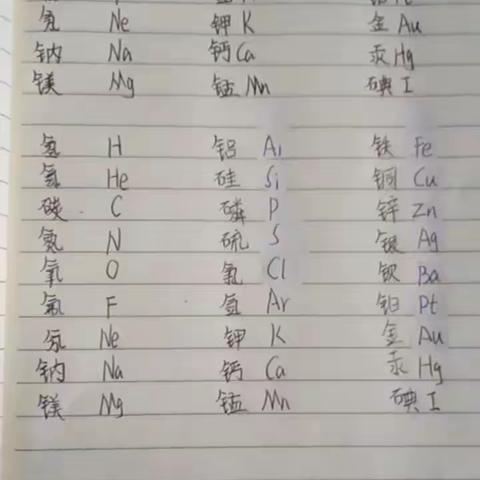 氖 Ne 钾 K 金 Au
钠 Na 钙 Ca 汞 Hg
镁 Mg 锰 Mn 碘 I
氢 H 铝 Al 铁 Fe
氦 He 硅 Si 铜 Cu
碳 C 磷 P 锌 Zn
氮 N 硫 S 银 Ag
氧 O 氯 Cl 钡 Ba
氟 F 氩 Ar 铂 Pt
氖 Ne 钾 K 金 Au
钠 Na 钙 Ca 汞 Hg
镁 Mg 锰 Mn 碘 I